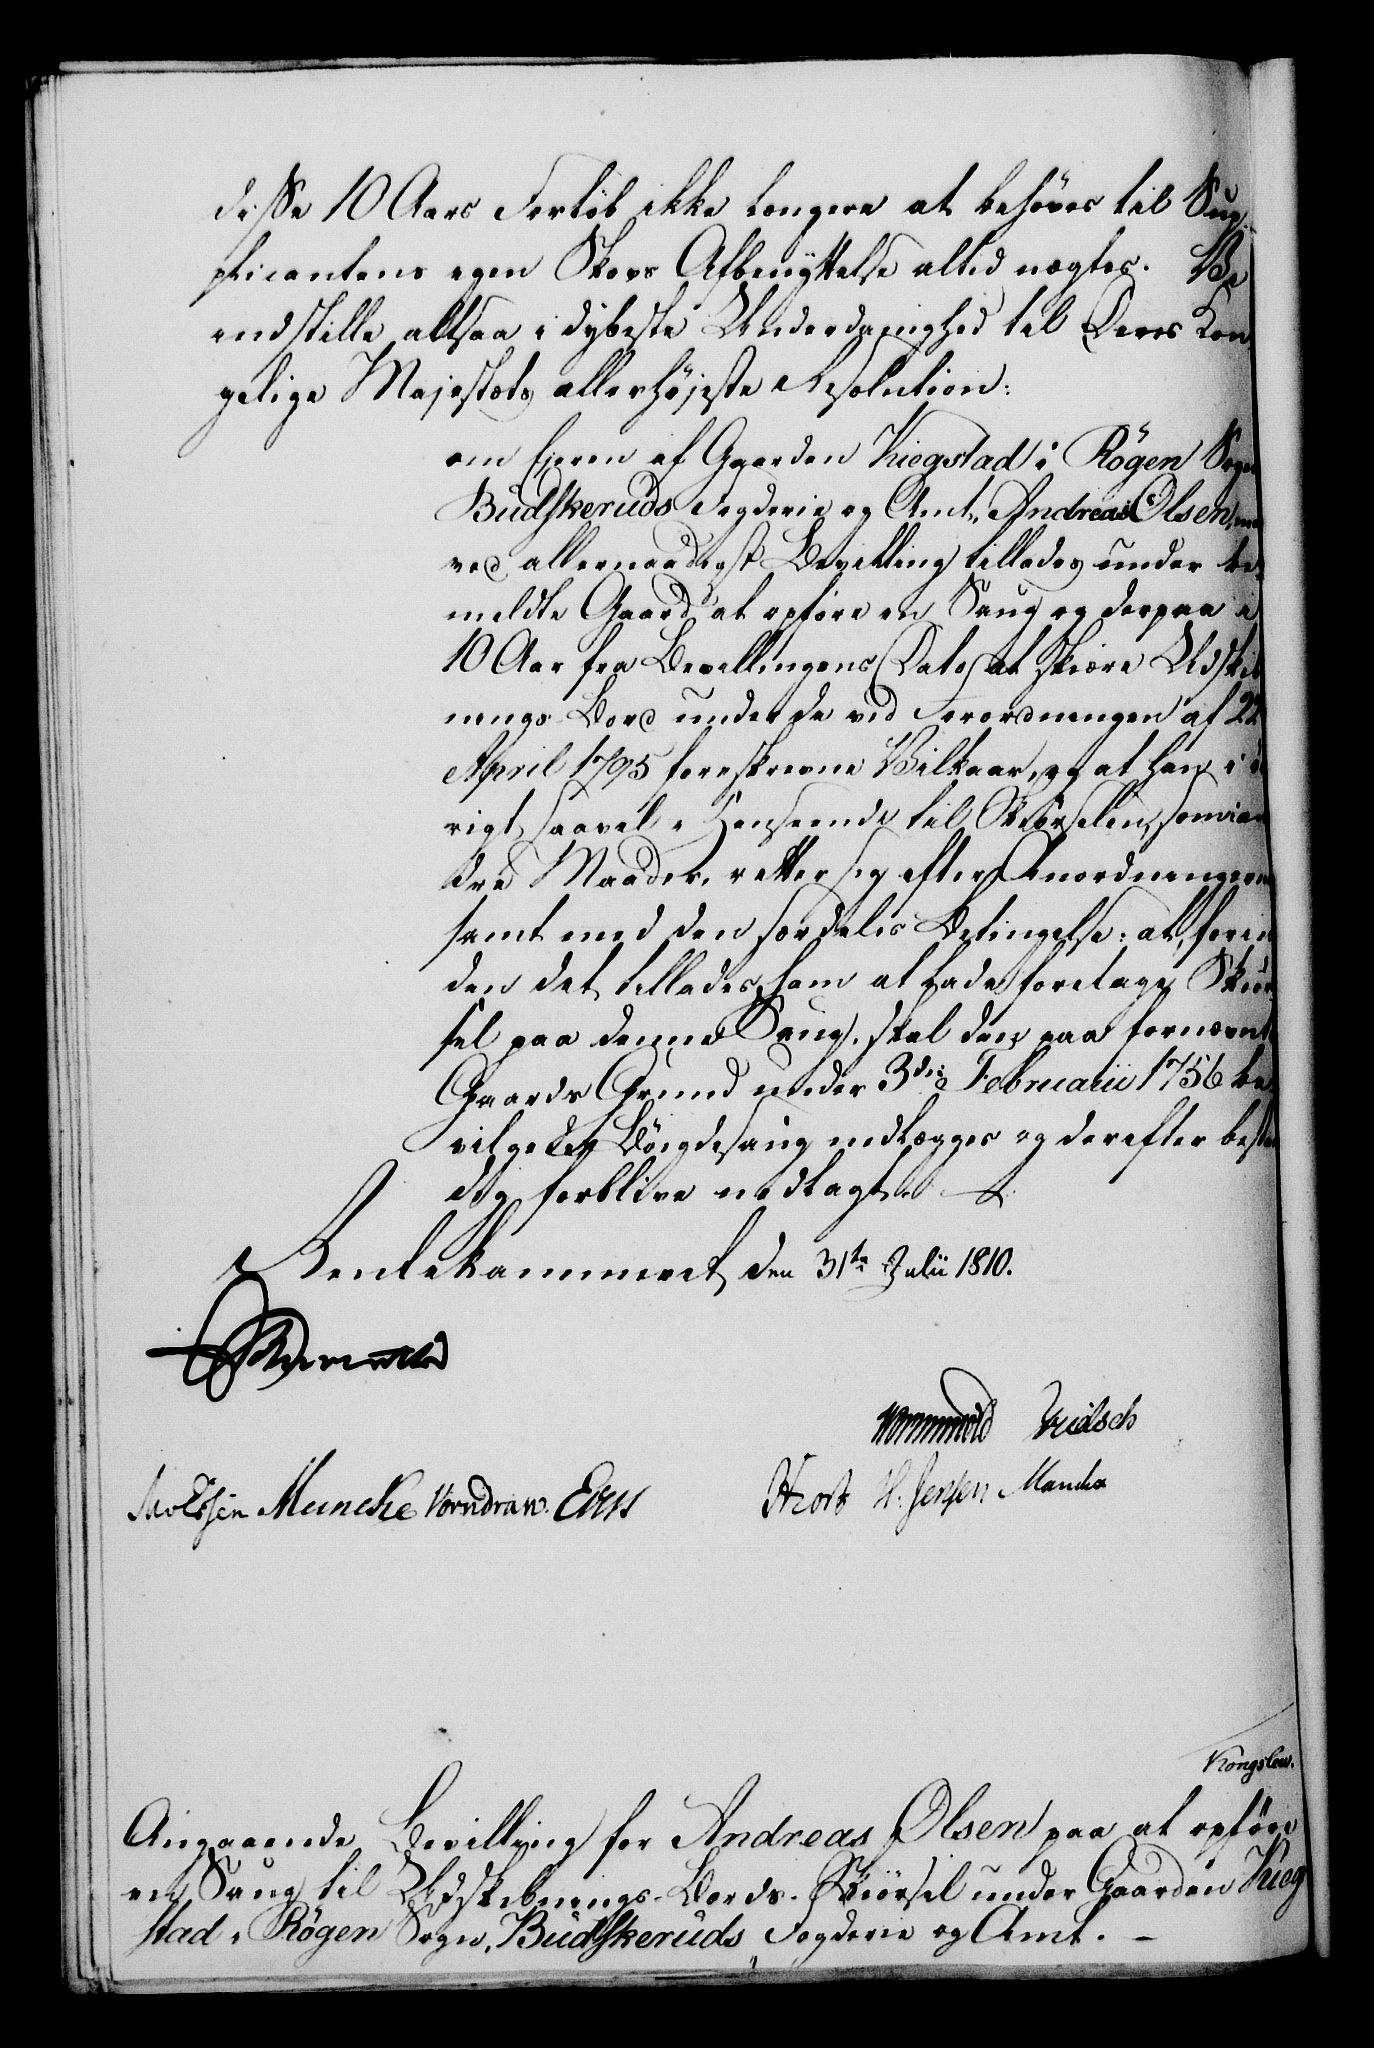 disse 10 Aars Forløb ikke længere at behøves til Sup-
plicantens egen Skovs Afbenyttelse altid nægtes. Vi
indstille altsaa i dybeste Underdanighed til Deres Kon-
gelige Majestæts allerhøjeste Resolution:
om Ejeren af Gaarden Kiegstad i Rögen Sogn
Budskeruds Fogderie og Amt, Andreas Olsen, maa
ved allernaadigst Bevilling tillades under be-
meldte Gaard at opføre en Saug og derpaa i
10 Aar fra Bevillingens Dato at skiære Udskib-
nings-Bord under de ved Forordningen af 22
April 1795 foreskrevne Vilkaar, og at han i øv-
rigt, saavel i Henseende til Skiørselen, som i an-
dre Maader, retter sig efter Anordningerne
samt med den særdeles Betingelse: at, forin-
den det tillades ham at lade foretage Skiør-
sel paa denne Saug, skal den paa fornævnte
Gaards Grund under 3die Februarii 1756 be-
vilgede Bøigdesaug nedlægges og derefter bestan-
dig forblive nedlagt.
Rentekammeret, den 31te Julii 1810.
Wormskiold
Knudsen Muncke Vorndran.
Hiort H. Jensen Manthe
Kongslew.
Angaaende Bevilling for Andreas Olsen paa at opføre
en Saug til Udskibnings-Bords-Skiørsel under Gaarden Kieg-
stad i Rögen Sogn, Budskeruds Fogderie og Amt. –